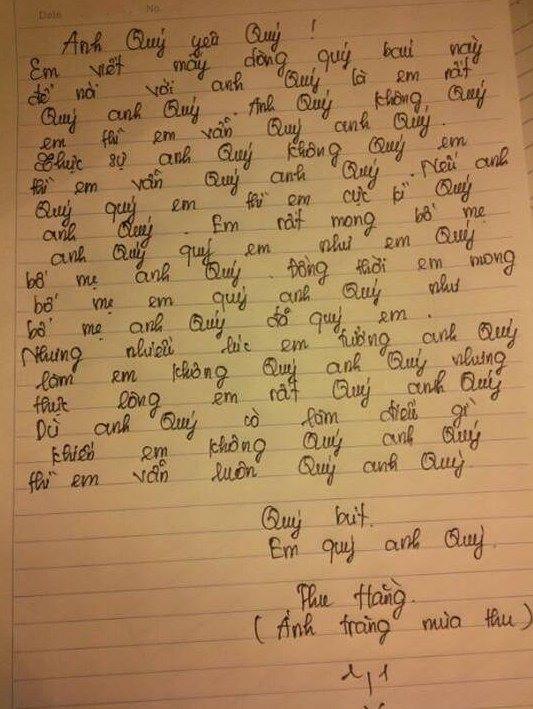 Date No.
Anh Quý yêu Quý !
Em viết mấy dòng quý baú này
để nói với anh Quý là em rất
Quý anh Quý. Anh Quý không Quý
em thì em vẫn Quý anh Quý.
Thực sự anh Quý không Quý em
thì em vẫn Quý anh Quý. Nếu anh
Quý quý em thì em cực kì Quý
anh Quý. Em rất mong bố mẹ
anh Quý quý em như em Quý
bố mẹ anh Quý. Đồng thời em mong
bố mẹ em quý anh Quý như
bố mẹ anh Quý đã quý em.
Nhưng nhiều lúc em tưởng anh Quý
làm em không Quý anh Quý nhưng
thực lòng em rất Quý anh Quý
Dù anh Quý có làm điều gì
khiến em không Quý anh Quý
thì em vẫn luôn Quý anh Quý.
Quý bút.
Em quý anh Quý.
Thu Hằng.
( Ánh trăng mùa thu )